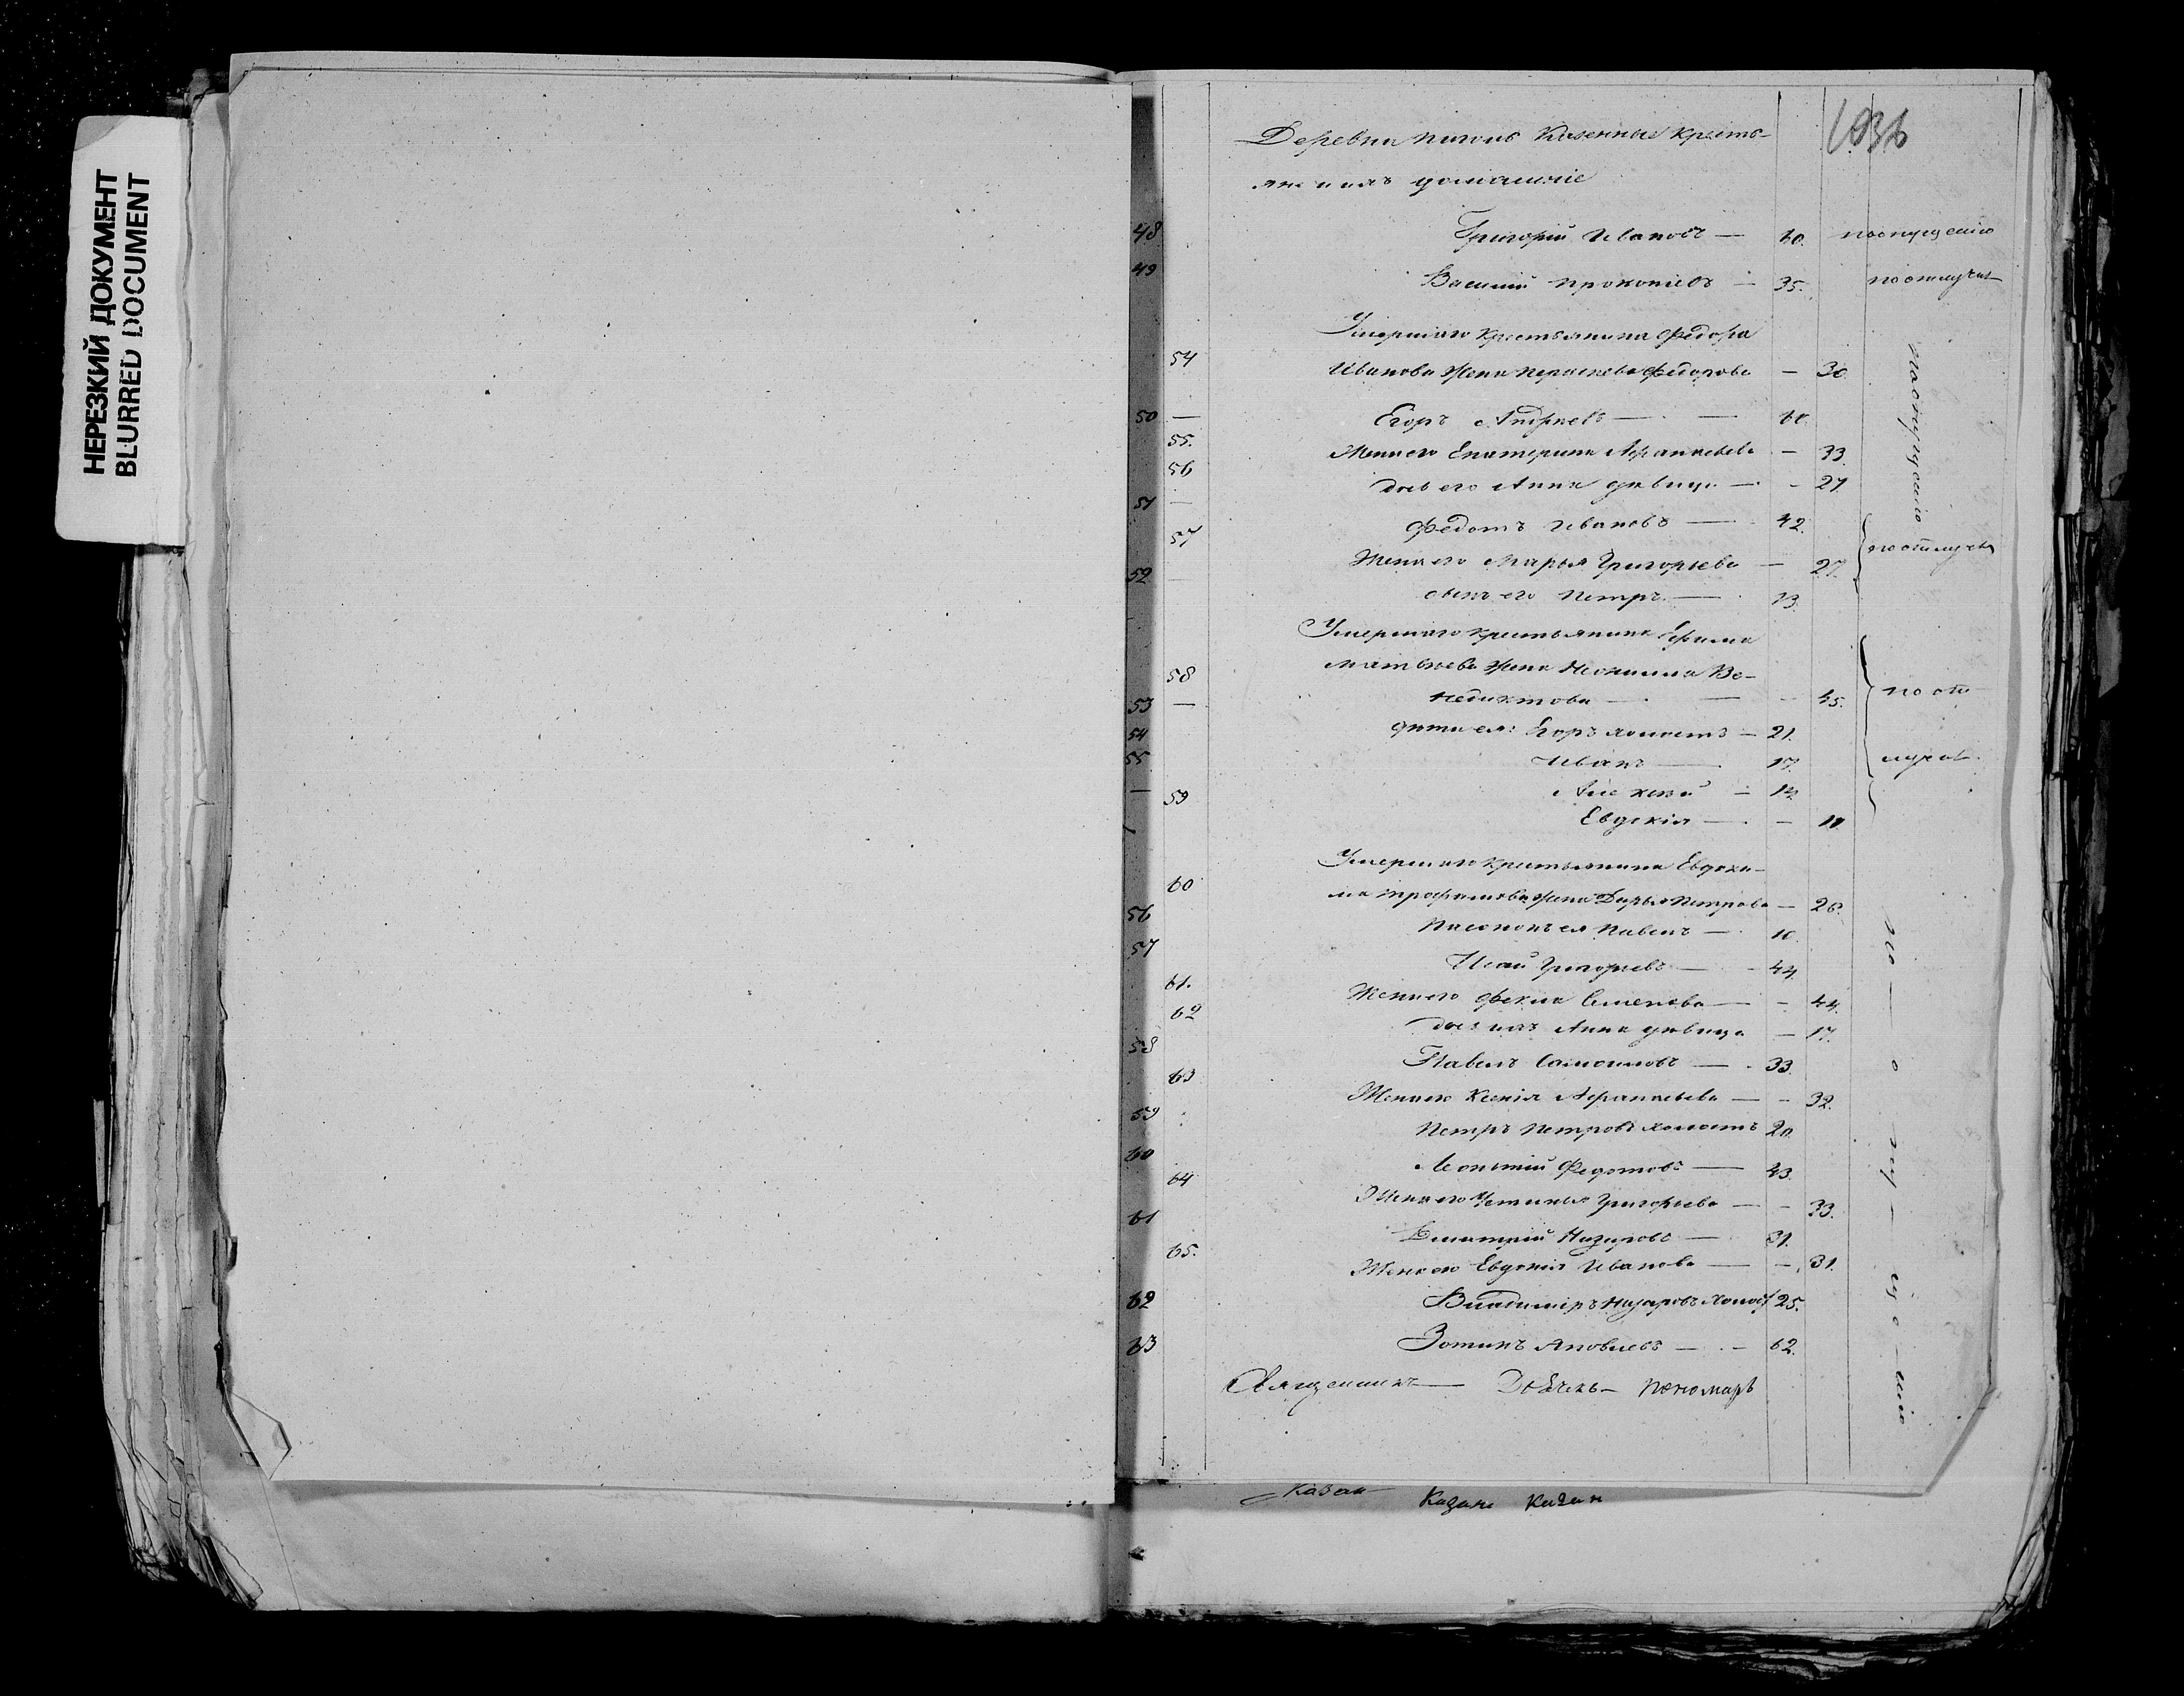 НЕРЕЗКИЙ ДОКУМЕНТ
BLURRED DOCUMENT
1036
Деревни казенные кресть-
яне и ихъ домашніе
48 Григорій Ивановъ — 60. поопущенію
49 Василій Прокопіевъ — 35. поотлучк
Умершаго крестьянина Федора
54 Иванова жена Парасковья Федорова — 30
поопущенію
50 — Егоръ Андреевъ — — 60.
55. Жена его Екатерина — 33.
56 дочь его Анна дѣвица — - 27.
51 — Федотъ Ивановъ — 42.
57 Жена его Марья Григорьева — 27. поотлучк
52 — сынъ его Петръ — 13.
Умершаго крестьянина Ефима
58 Матвѣева жена Неонилла Ве-
53 — недиктова — — - 45. по от
54 дѣти ея: Егоръ холостъ — 21.
55 Иванъ — 17. лучк.
— Алексѣй — 14
59 Евдокія — — 11.
Умершаго крестьянина Евдоки-
60 ма Трофимова жена Дарья Петрова — 26.
56 Пасынокъ ея Павелъ — 10.
57 Исай Григорьевъ — - 44.
61. Жена его Фекла Семенова — - 44.
62 дочь ихъ Анна дѣвица — 17.
58 Павелъ Самоиловъ — 33.
63 Жена его Ксенія — - 32.
59 Петръ Петровъ холостъ 20
60 Леонтій Федотовъ — 43
64 Жена его Устинья Григорьева — - 33.
61 Дмитрій Назаровъ — 31.
65. Жена его Евдокія Иванова — - 31.
62 Владиміръ Назаровъ холост 25.
63 Зотикъ Яковлевъ — - 62.
по — о пу — ще — нію
Священникъ — Дьячекъ — Пономарь
Казан Казане Казан